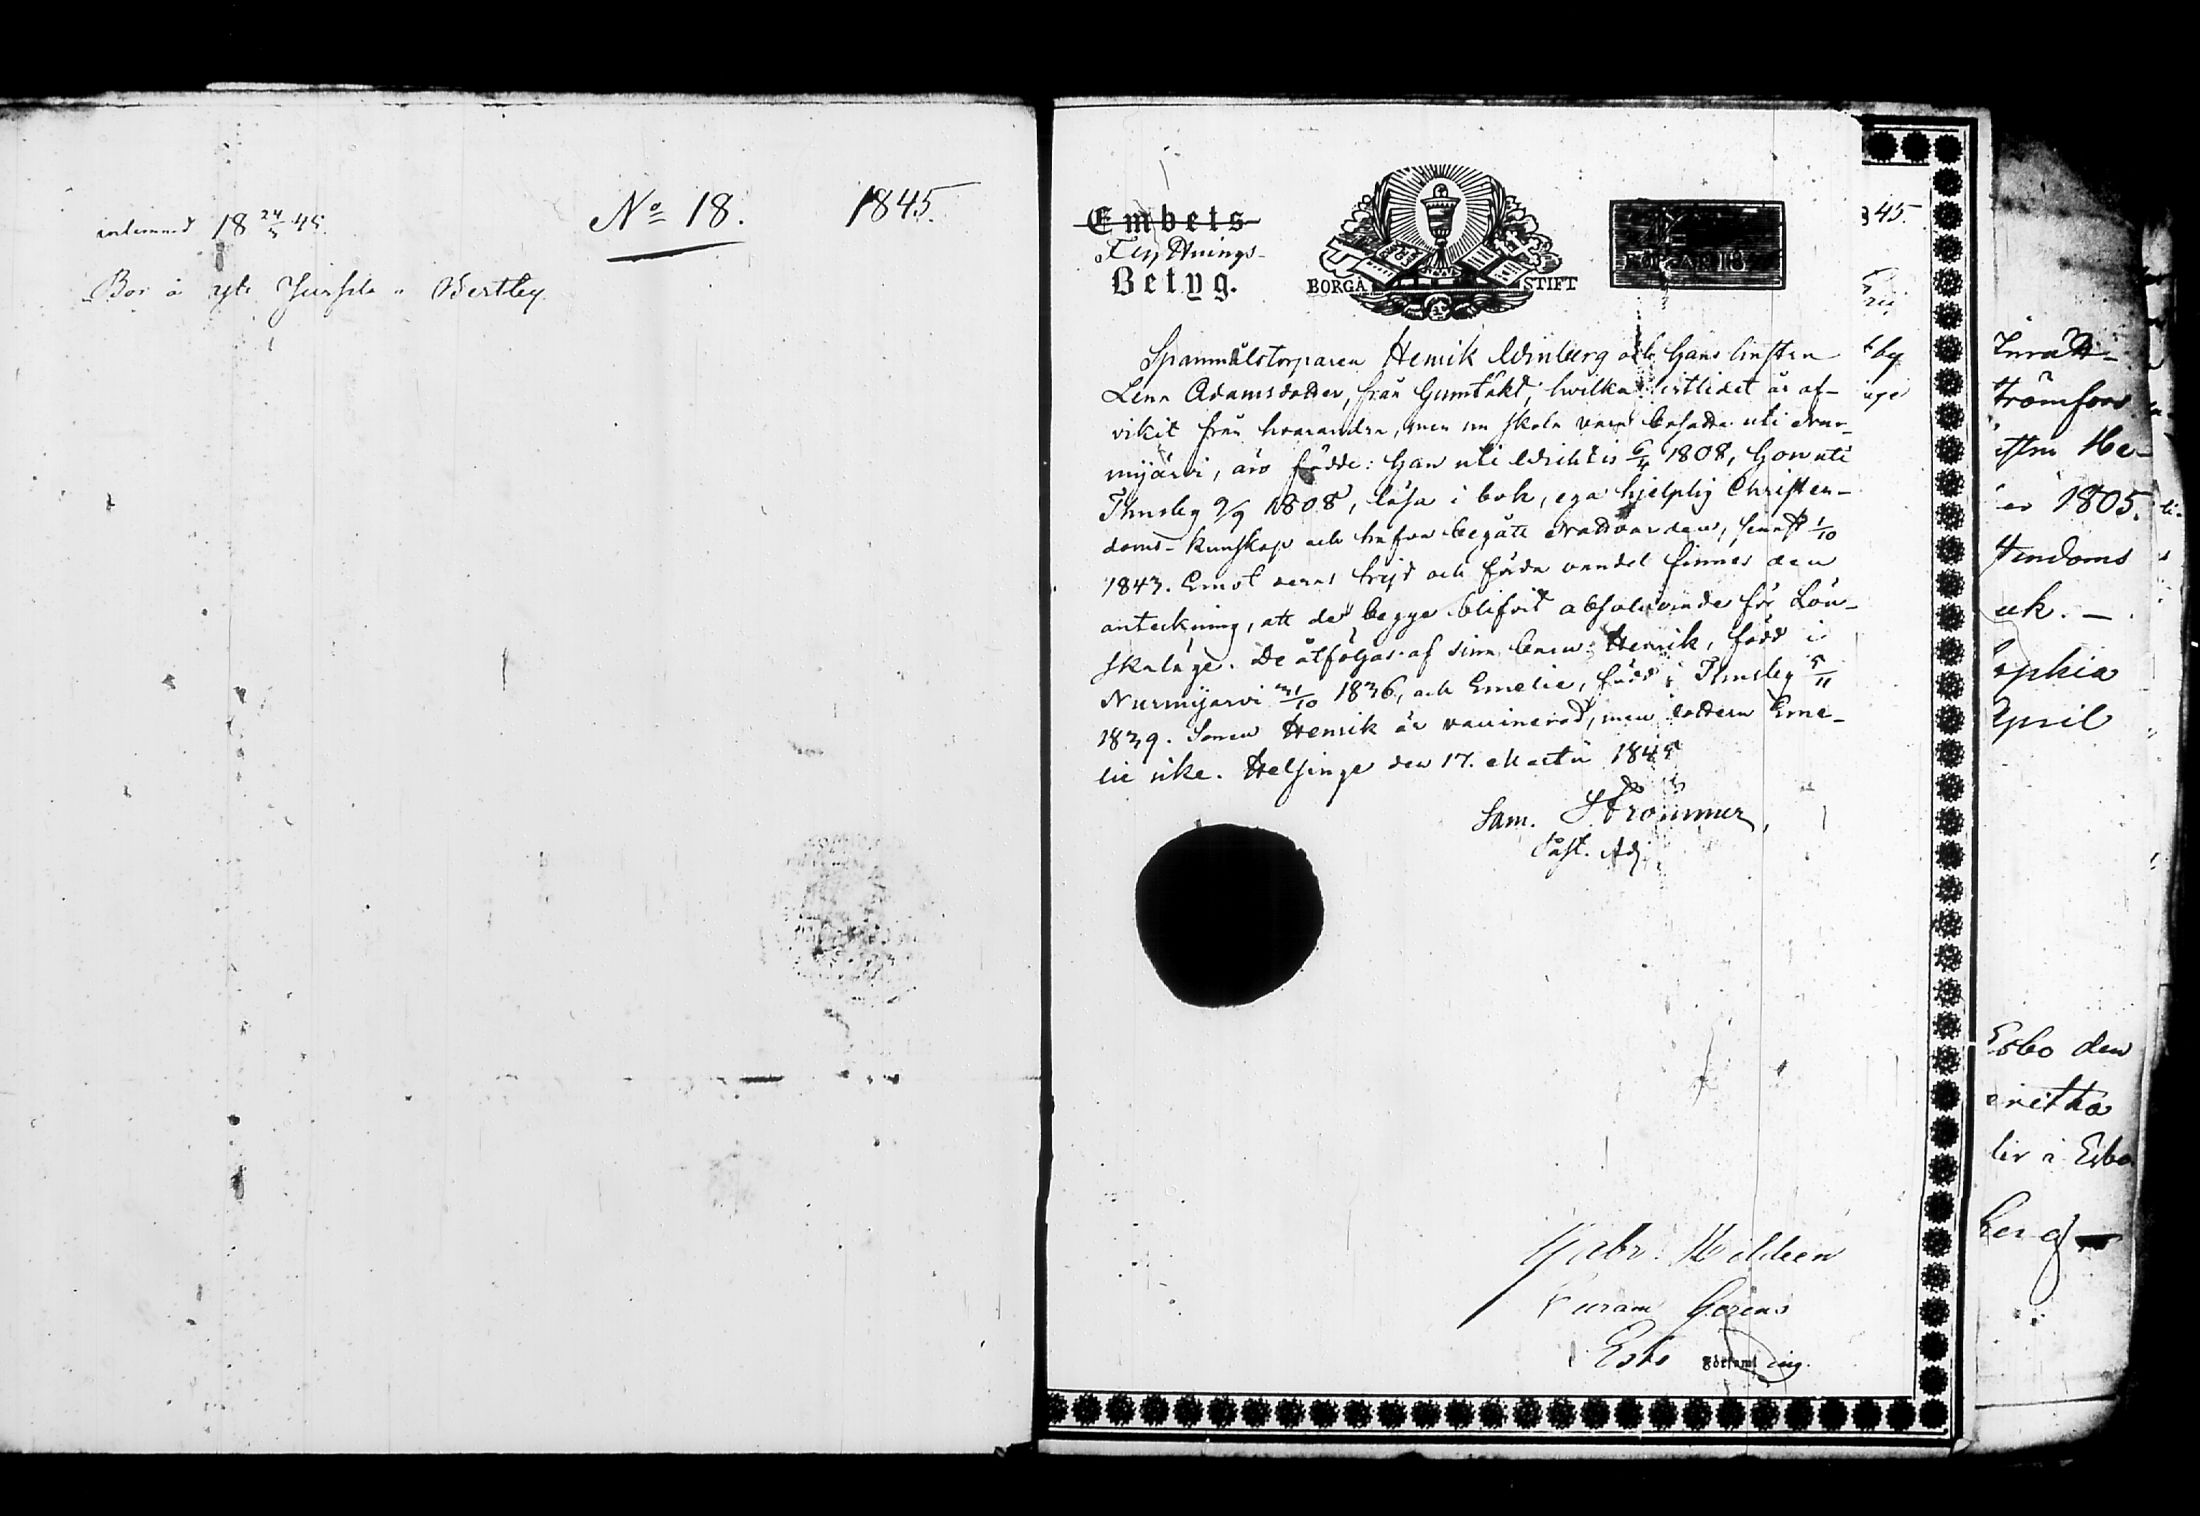 inlemnad 18 24/5 45.
No 18. 1845.
Bor å yti
Embets
Flyttnings-
Betyg.
BORGÅ STIFT
Spanmålstorparen Henrik Winberg och hans hustru
Lena Adamsdotter, från Gumtäkt, hvilka
vikit från hvarandra, men nu skola vara bosatte uti Nur-
mijärvi, äro födde: han uti Wichtis 6/4 1808, hon uti
Thusby 9/9 1808, läsa i bok, ega hjelplig Christen-
doms-kunskap och hafva begått Nattvarden, sennst 1/10
1843. Emot deras frejd och förda vandel finnes den
anteckning, att de begge blifvit absolverade för Lön-
skaläge. De åtföljas af sina barn: Henrik, född i
Nurmijärvi 31/10 1836, och Emelie, född i Thusby 5/11
1839. Sonen Henrik är vaccinerad, men dottern Eme-
lie icke. Helsinge den 17. Martii 1845
Sam. Strömmer,
Past. Adj.
Gabr.
Esbo Församling.
45.
by
Strömfors
1805.
stendoms
Sophia
April
Esbo den
ritha
Esbo
berg